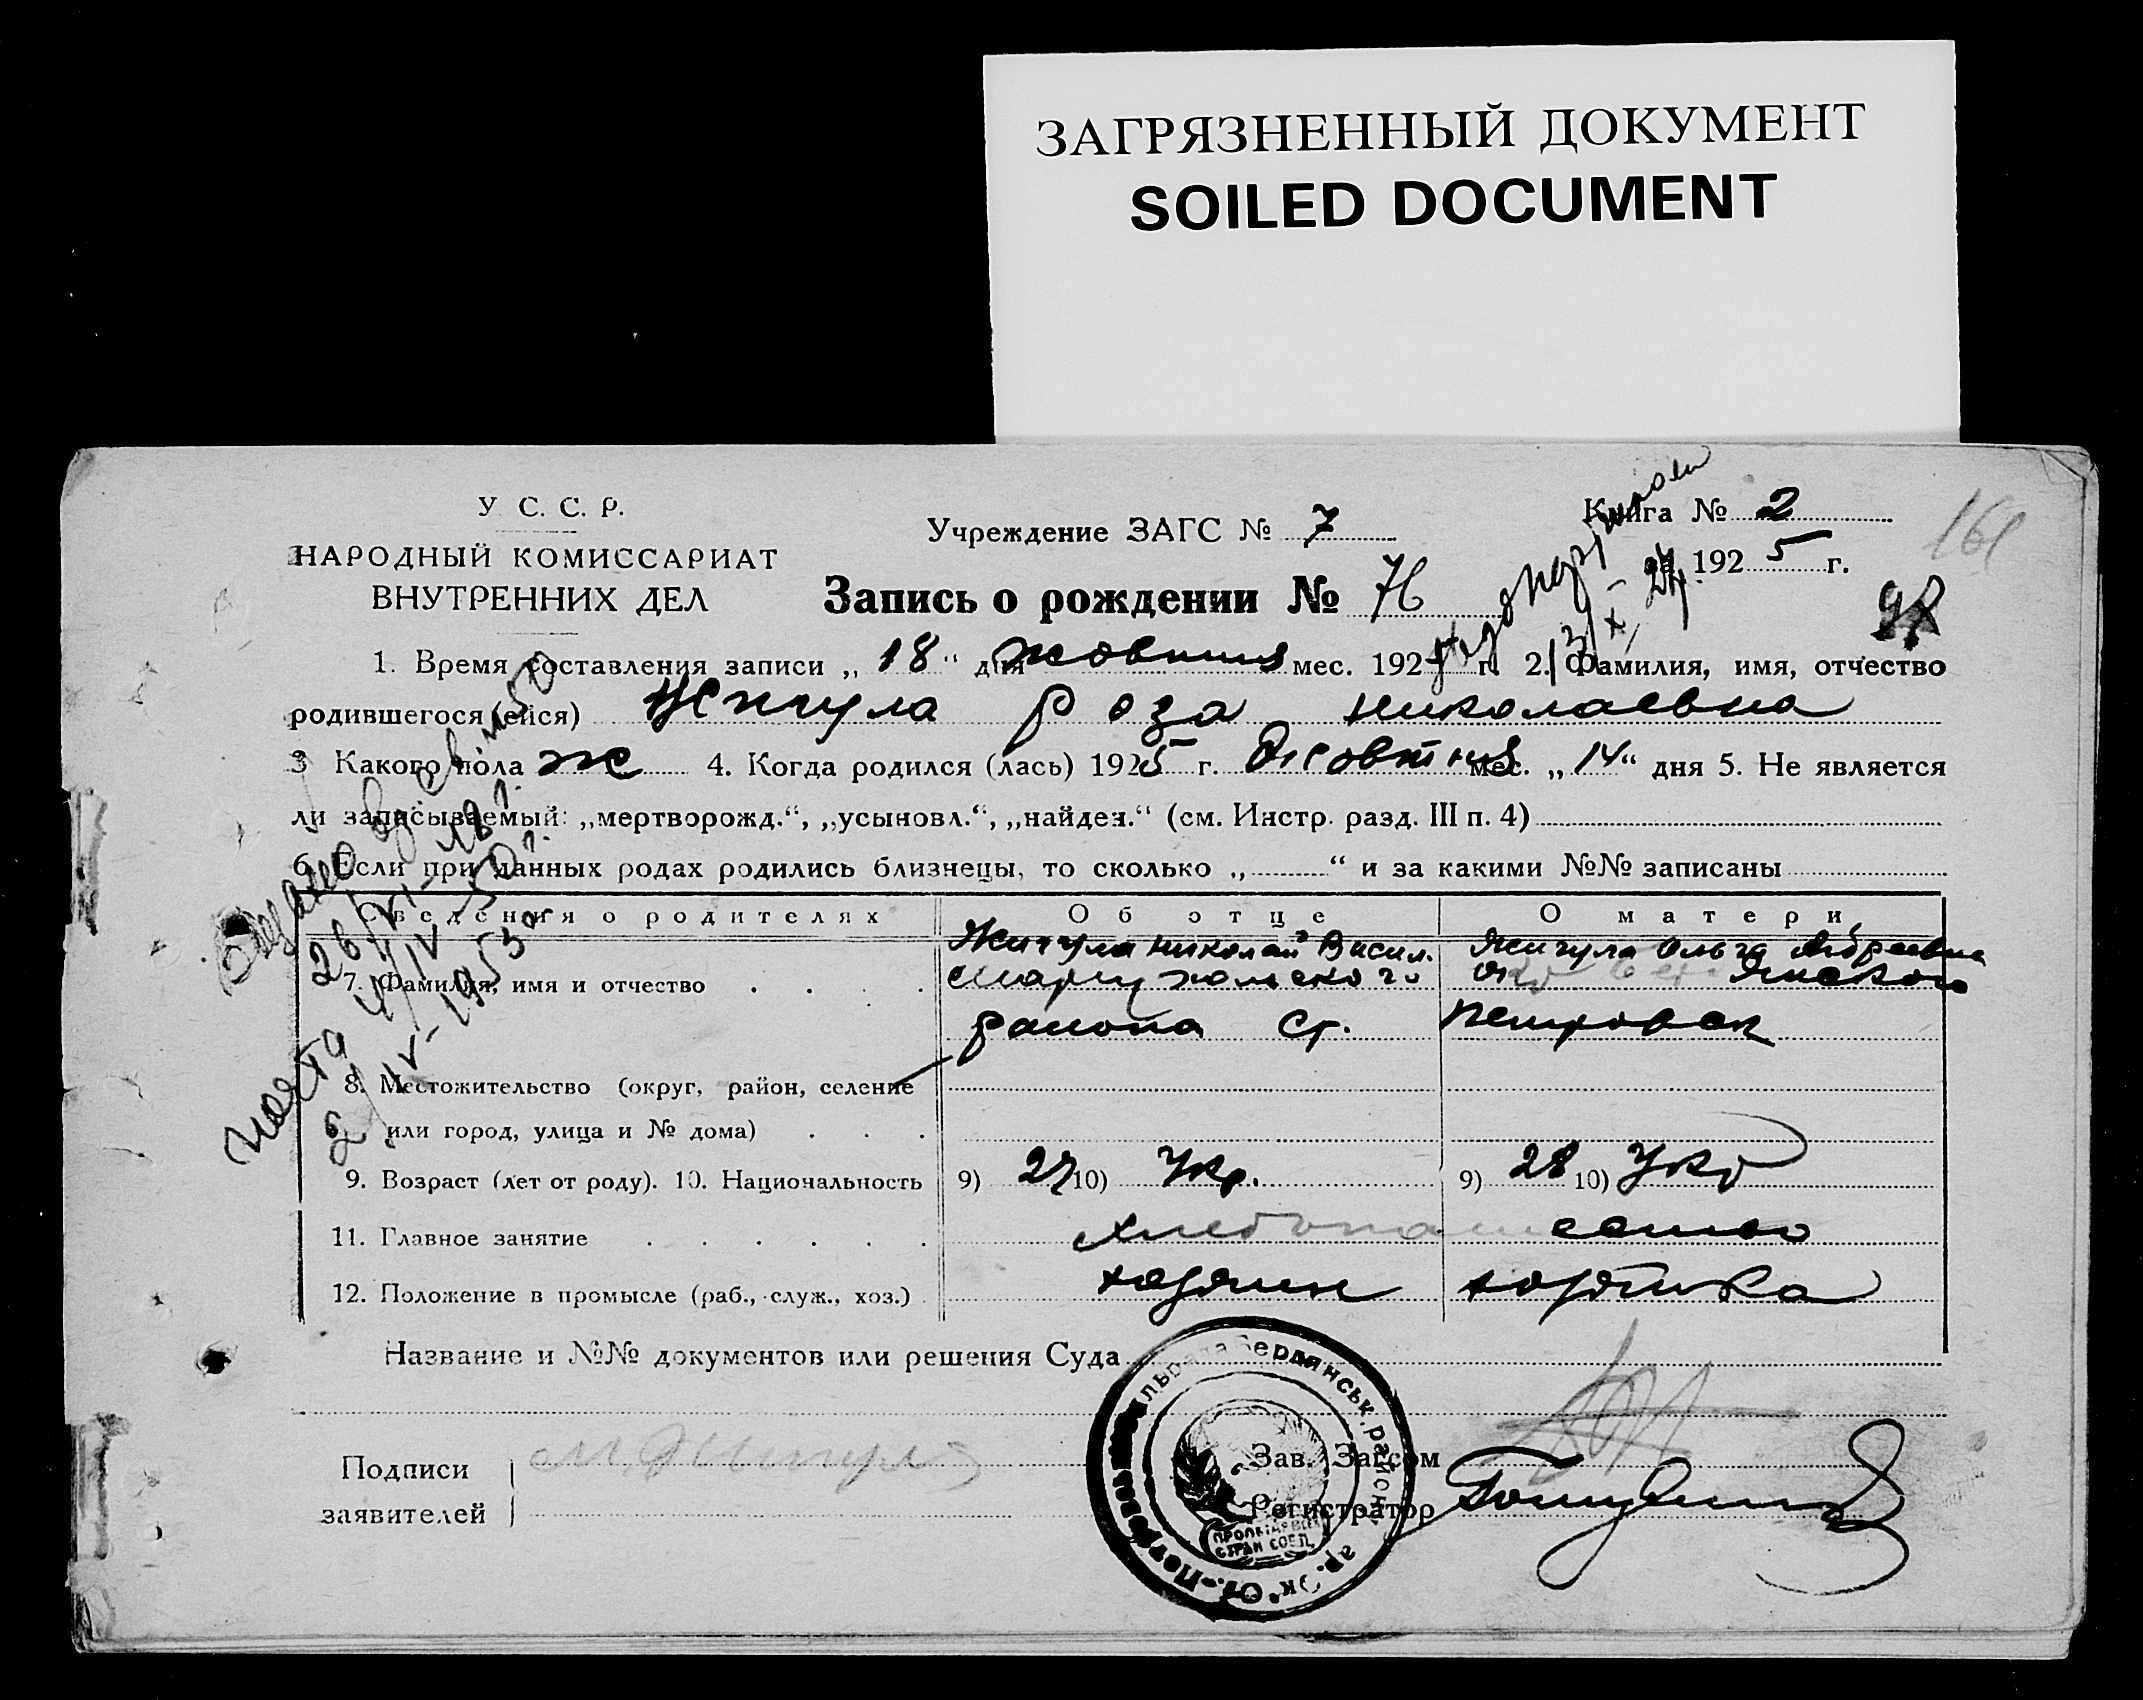 ЗАГРЯЗНЕННЫЙ ДОКУМЕНТ
SOILED DOCUMENT
У С. С. Р.
НАРОДНЫЙ КОМИССАРИАТ
ВНУТРЕННИХ ДЕЛ
Учреждение ЗАГС № 7
Книга № 2
за 1925 г.
161
Запись о рождении №
1. Время составления записи „18“ дня жовтня мес. 192 г. 2. Фамилия, имя, отчество
родившегося (ейся) Жигула Роза Николаевна
3 Какого пола ж 4. Когда родился (лась) 1925 г. Жовтня мес. „14“ дня 5. Не является
ли записываемый: „мертворожд.“, „усыновл.“, „найден.“ (см. Инстр. разд. III п. 4)
6. Если при данных родах родились близнецы, то сколько „ “ и за какими №№ записаны
Сведения о родителях Об отце О матери
Жигула Николай Васил. Жигула Ольга Андреевна
7. Фамилия, имя и отчество Мариупольского
района Ст. Петровск
8. Местожительство (округ, район, селение
или город, улица и № дома)
9. Возраст (лет от роду). 10. Национальность 9) 27 10) Укр. 9) 28 10) Укр
11. Главное занятие хлебопашество
12. Положение в промысле (раб., служ., хоз.) хозяин хозяйка
Название и №№ документов или решения Суда
Подписи
заявителей
М. Жигула
Зав. Загсом
Регистратор
Бердянськ. район
Ст.-Петровс
ПРОЛЕТАРІ ВСІХ
СТРАН СОЕД.